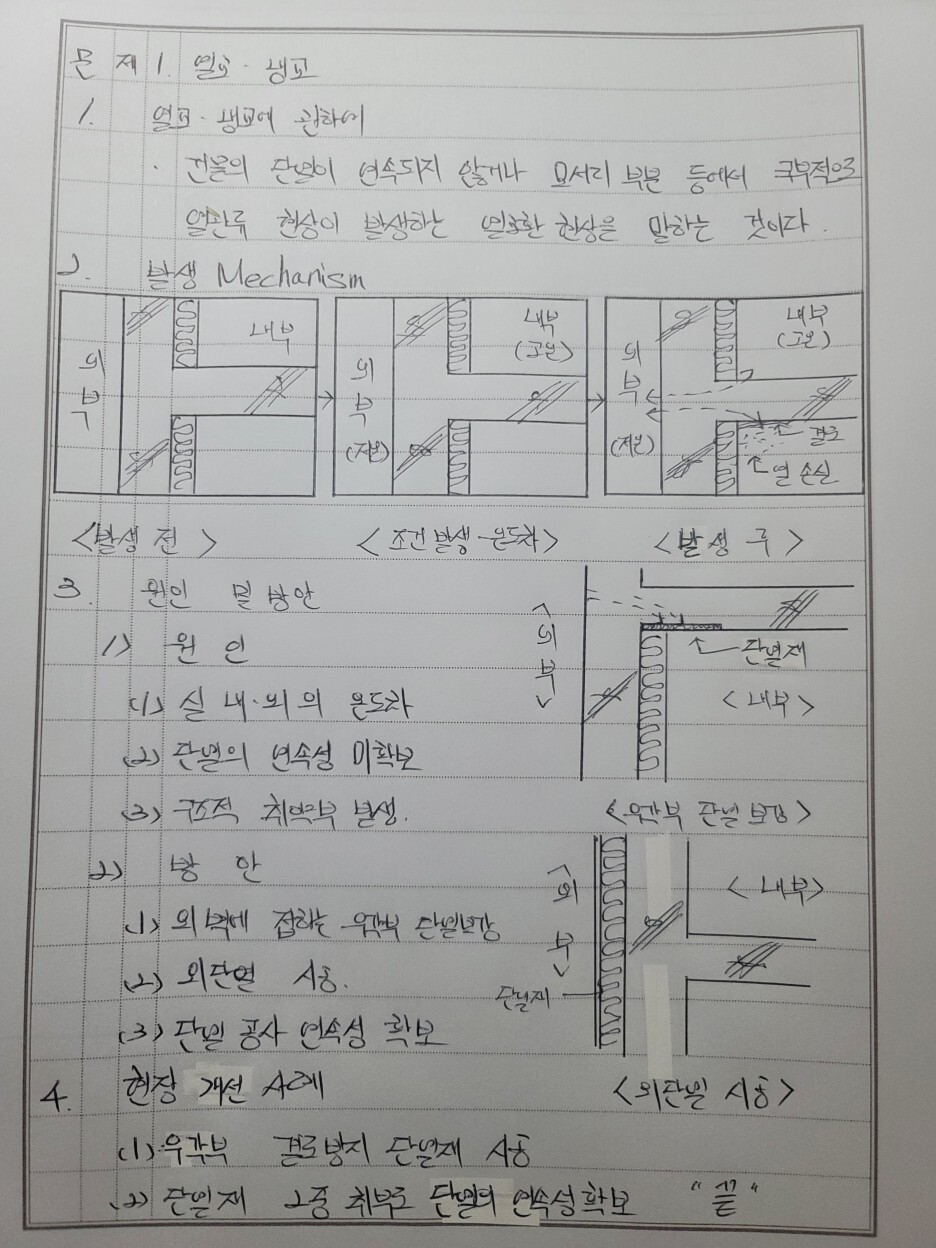 문 제 1. 열교·냉교
1. 열교·냉교에 관하여
· 건물의 단열이 연속되지 않거나 모서리 부분 등에서 국부적으로
열관류 현상이 발생하는 열교환 현상을 말하는 것이다.
2. 발생 Mechanism
외부 내부
외부 (저온) 내부 (고온)
외부 (저온) 내부 (고온) 결로 열 손실
<발생 전> <조건발생-온도차> <발생 후>
3. 원인 및 방안
1) 원 인
(1) 실 내·외의 온도차
(2) 단열의 연속성 미확보
(3) 구조적 취약부 발생.
<외부> 단열재 <내부>
<우각부 단열보강>
2) 방 안
(1) 외벽에 접하는 우각부 단열보강
(2) 외단열 시공.
(3) 단열 공사 연속성 확보
<외부> 단열재 <내부>
<외단열 시공>
4. 현장 개선 사례
(1) 우각부 결로방지 단열재 시공
(2) 단열재 2중 취부로 단열의 연속성확보 "끝"